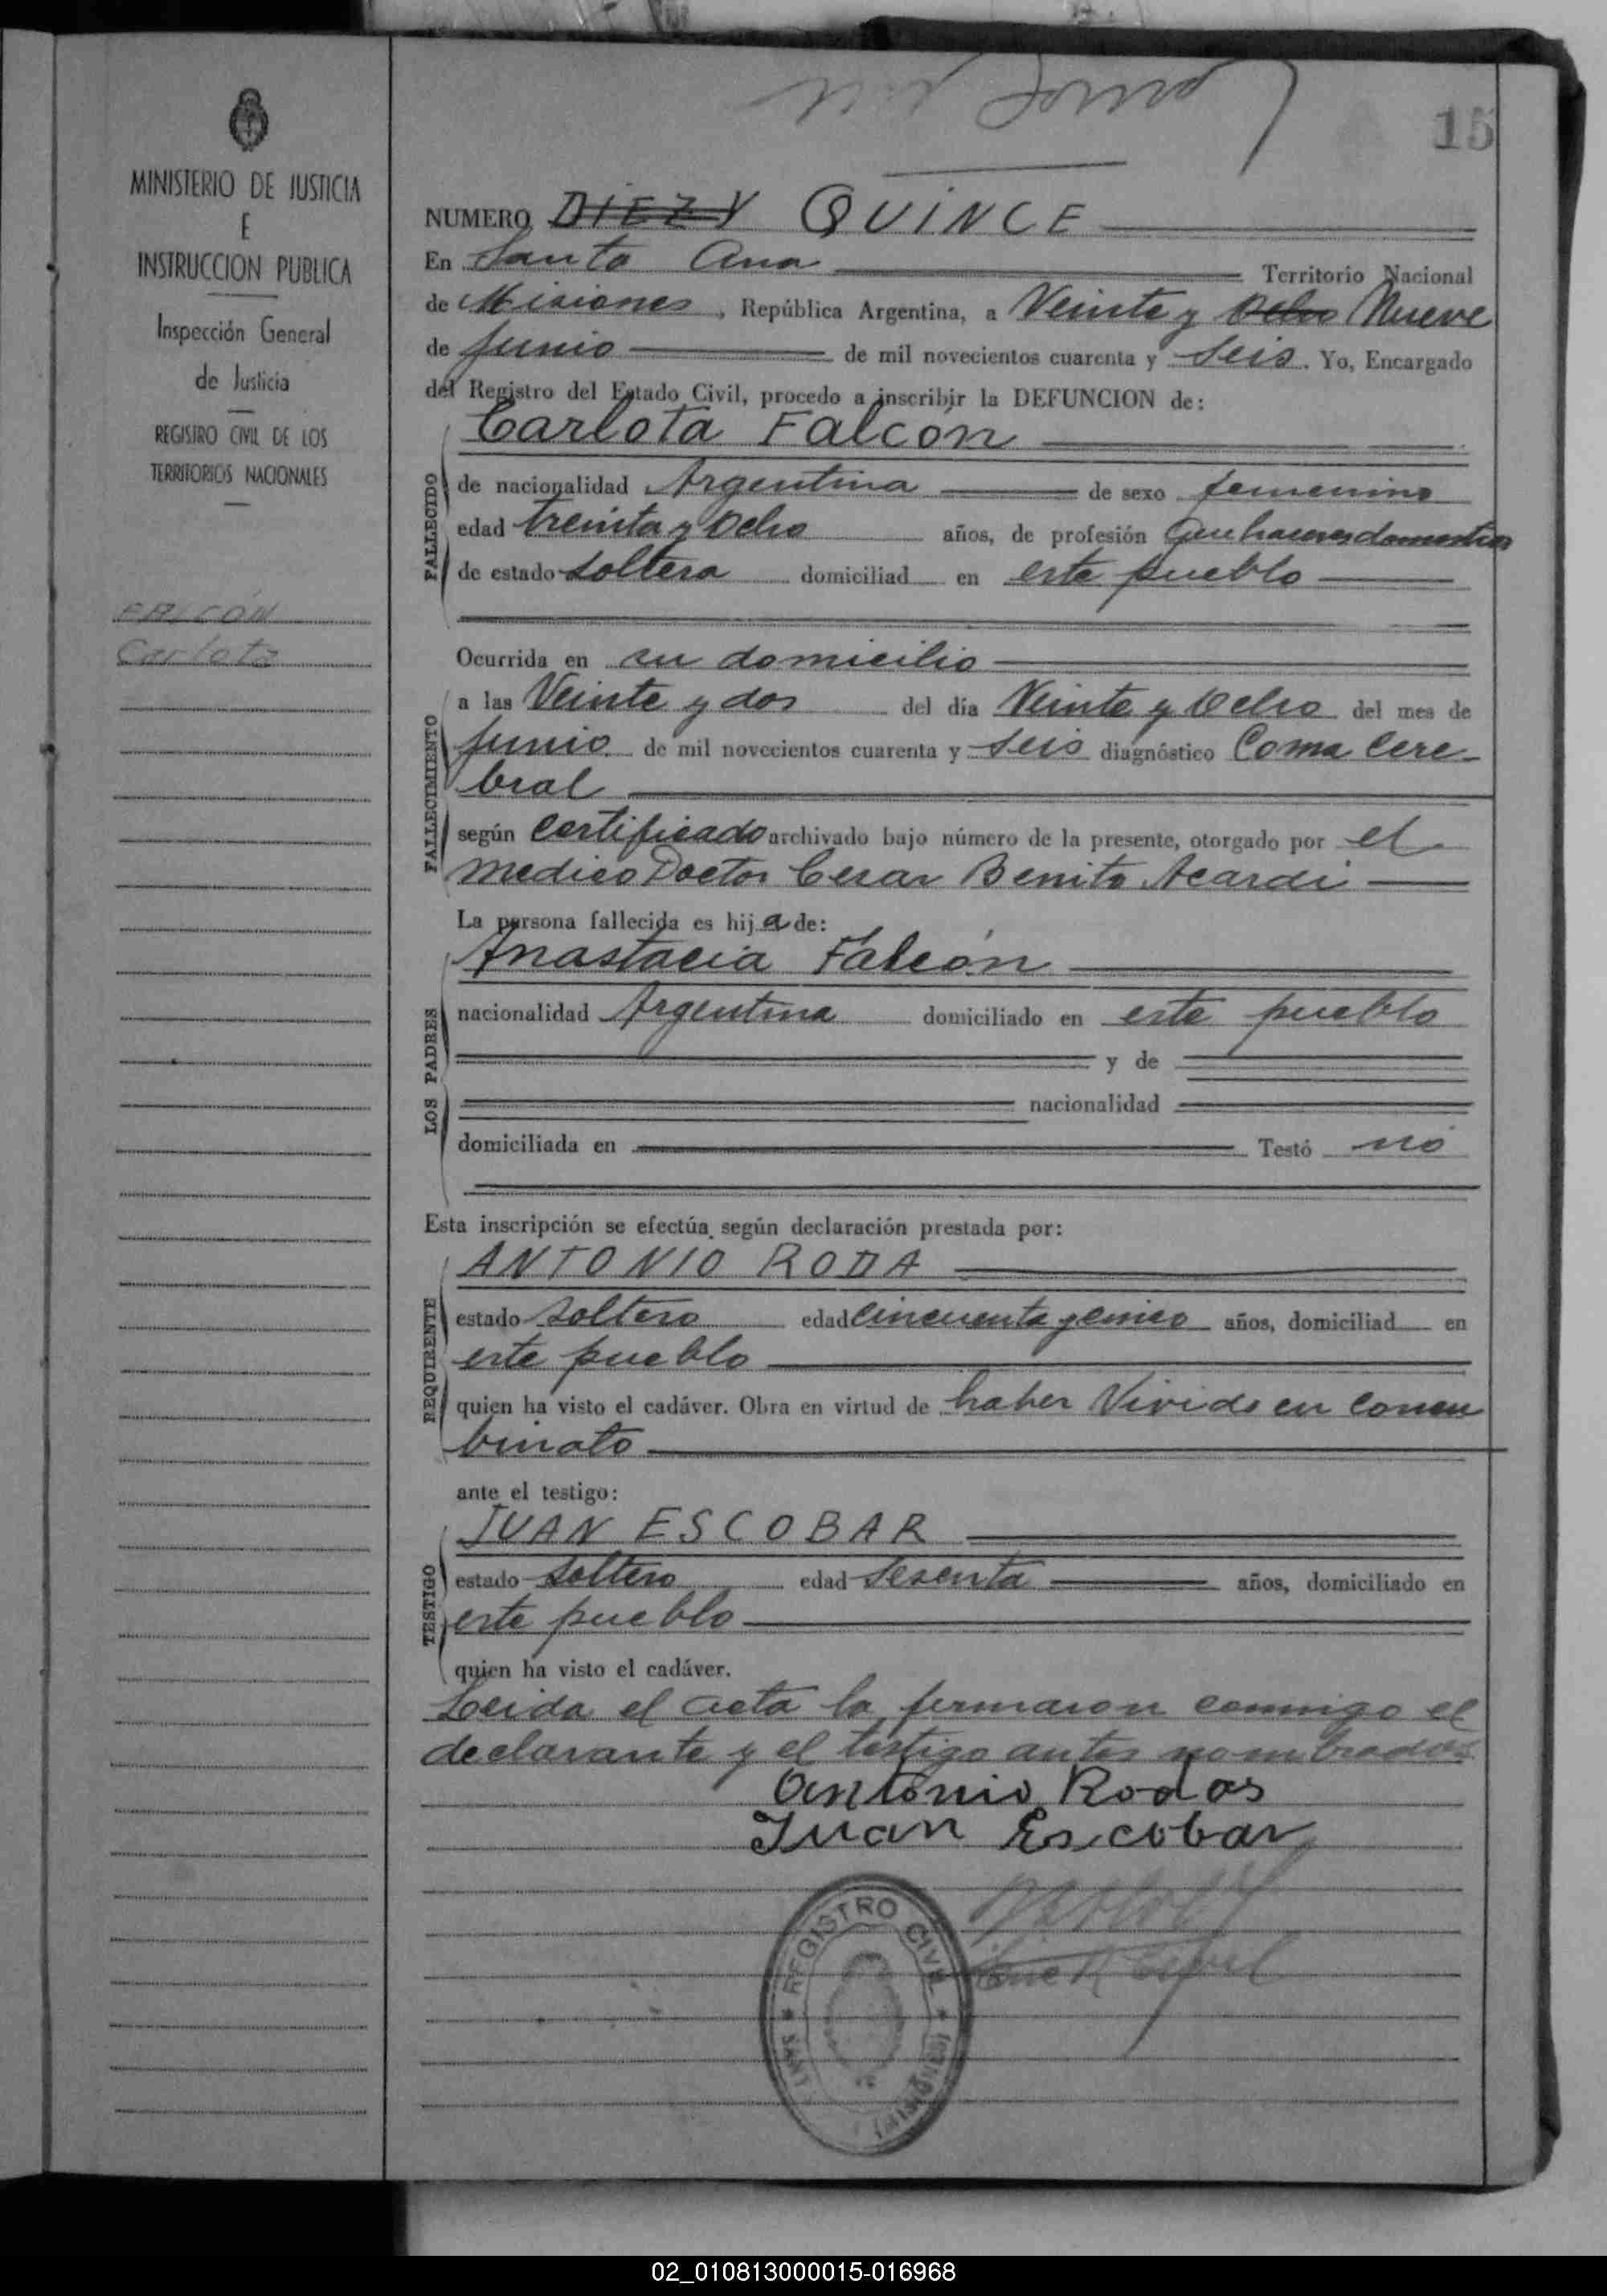 15
MINISTERIO DE JUSTICIA
E
INSTRUCCION PUBLICA
Inspección General
de Justicia
REGISTRO CIVIL DE LOS
TERRITORIOS NACIONALES
FALCÓN
Carlota
NUMERO DIEZ Y QUINCE
En Santa Ana Territorio Nacional
de Misiones, República Argentina, a Veinte y Ocho Nueve
de Junio de mil novecientos cuarenta y Seis. Yo, Encargado
del Registro del Estado Civil, procedo a inscribir la DEFUNCION de:
Carlota Falcón
FALLECIDO
de nacionalidad Argentina de sexo femenino
edad treinta y Ocho años, de profesión Quehaceres domesticos
de estado Soltera domiciliad en este pueblo
Ocurrida en su domicilio
FALLECIMIENTO
a las Veinte y dos del día Veinte y Ocho del mes de
Junio de mil novecientos cuarenta y Seis diagnóstico Coma Cere-
bral
según Certificado archivado bajo número de la presente, otorgado por el
medico Doctor Cesar Benito Acardi
La persona fallecida es hija de:
LOS PADRES
Anastacia Falcón
nacionalidad Argentina domiciliado en este pueblo
y de
nacionalidad
domiciliada en Testó no
Esta inscripción se efectúa según declaración prestada por:
REQUIRENTE
ANTONIO RODA
estado Soltero edad Cincuenta y cinco años, domiciliad en
este pueblo
quien ha visto el cadáver. Obra en virtud de haber Vivido en Concu
binato
ante el testigo:
TESTIGO
JUAN ESCOBAR
estado Soltero edad Sesenta años, domiciliado en
este pueblo
quien ha visto el cadáver.
Leida el acta la firmaron conmigo el
declarante y el testigo antes nombrados
Antonio Rodas
Juan Escobar
REGISTRO CIVIL
02_010813000015-016968